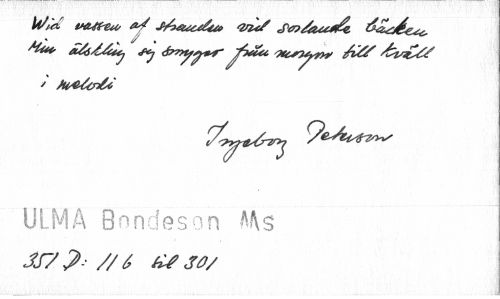 Wid vassen af stranden vid sorlande bäcken
Min älskling sig smyger från morgon till kväll
i melodi
Ingeborg Peterson
ULMA Bondeson Ms
351 D: 116 till 301